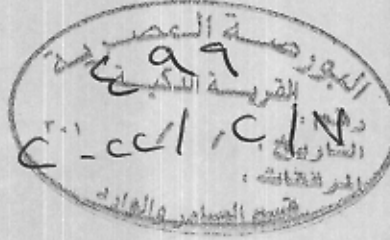 البورصة المصرية
٤٩٩
القرية الذكية
رقم :
التاريخ : ٢٠١
المرفقات :
قسم الصادر والوارد